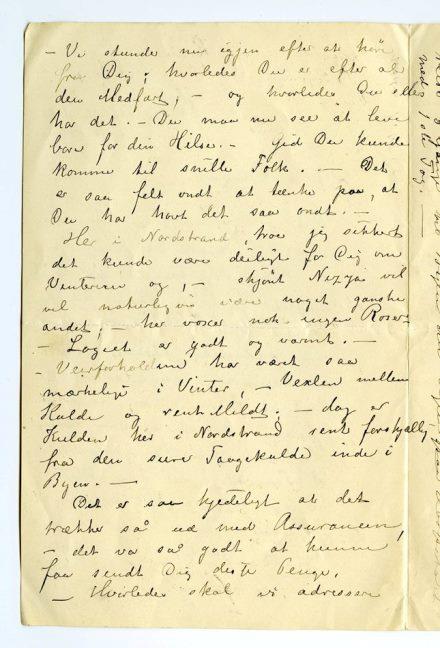 - Vi stunde nu igjen efter at høre
fra Dig, hvorledes Du er efter al
den Medfart, - og hvorledes Du ellers
har det. - Du maa nu see at leve
bare for din Hilse. - Gid Du kunde
komme til snille Folk. - Det
er saa felt ondt at tænke paa, at
Du har havt det saa ondt. -
Her i Nordstrand, troe jeg sikkert
det kunde være deiligt for Dig om
Vinteren og, - skjønt Nizza vil
vel naturligvis være noget ganske
andet, - her voxer nok ingen Roser
- Logiet er godt og varmt. -
- Veirforholdene har været saa
mærkelige i Vinter, - Vexlen mellem
Kulde og rent Mildt; - dog er
Kulden her i Nordstrand rent forskjællig
fra den sure Taagekulde inde i
Byen. -
Det er saa kjedeligt at det
trækker så ud med Assurancen,
- det va så godt at kunne
faa sendt Dig de Penge.
- Hvorledes skal vi adressere
med